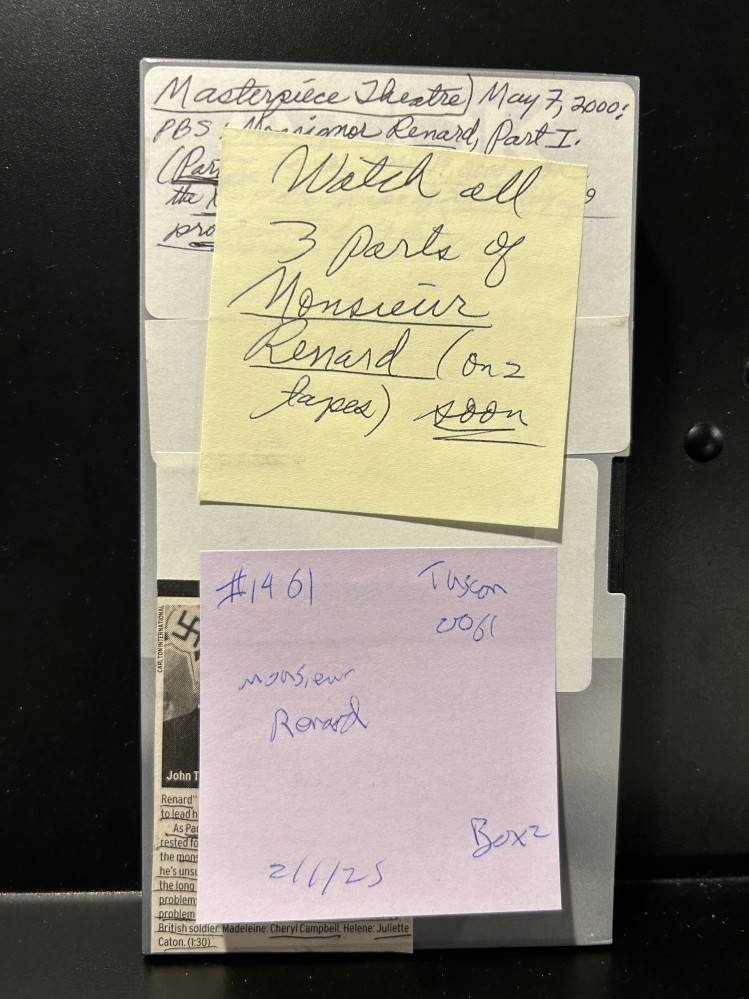 Masterpiece Theatre) May 7, 2000:
PBS: Monsignor Renard, Part I.
(Par
the
pro
Watch all
3 parts of
Monsieur
Renard (on 2
tapes) soon
#1461
Tuscon
0061
Monsieur
Renard
Box 2
2/1/25
CARLTON INTERNATIONAL
John T
Renard"
to lead h
As Par
rested fo
the mons
he's unsu
the long
problem
problem
British soldier. Madeleine: Cheryl Campbell. Helene: Juliette
Caton. (1:30)